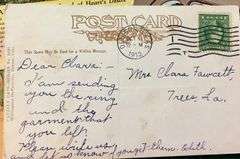 POST CARD
This Space May Be Used for a Written Message.
1913
Dear Clara:-
I am sending
you the ring
and the
garment that
you left.
Please
let me know if you get them. Edith
Mrs Clara Fawcett,
La.